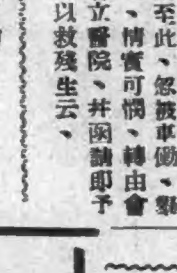 至此、忽被車
、情實可憫、轉由會
立醫院、并函請即予
以救殘生云、